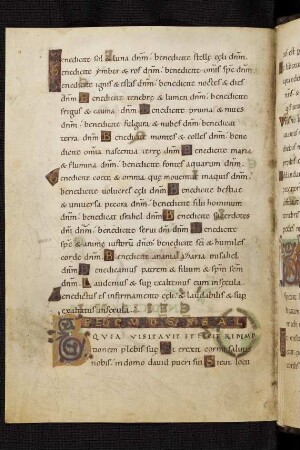 Benedicite sol & luna dnm̄ · benedicite stelle cęli dnm̄
Benedicite ymber & ros dnm̄ · benedicite omnis sps dnm̄
Benedicite ignis & ęstas dnm̄ · benedicite noctes & dies
dnm̄ · Benedicite tenebrę & lumen dnm̄ · benedicite
frigus & cauma dnm̄ · Benedicite pruina & niues
dnm̄ · benedicite fulgura & nubes dnm̄ · benedicat
terra dnm̄ · Benedicite montes & colles dnm̄ · bene
dicite omnia nascentia terrę dnm̄ · Benedicite maria
& flumina dnm̄ · benedicite fontes aquarum dnm̄ ·
Benedicite coete & omnia quę mouentur in aquis dnm̄
benedicite uolucres cęli dnm̄ · Benedicite bestiae
& uniuersa pecora dnm̄ · benedicite filii hominum
dnm̄ · benedicat israhel dnm̄ · Benedicite sacerdotes
dnī dnm̄ · benedicite serui dnī dnm̄ · Benedicite
sps & animę iustorū dnm̄ · benedicite sci & humiles
corde dnm̄ · Benedicite anania azaria misahel
dnm̄ · Benedicamus patrem & filium & spm̄ scm̄
dnm̄ · Laudemus & sup exaltemus eum in secula ·
Benedictus es in firmamento cęli · & laudabilis & sup
exaltatus in secula ·
DS ISRAL
QUIA VISITAVIT ET FECIT REDEMP
tionem plebis suę · Et erexit cornu salutis
nobis · in domo dauid pueri sui · Sicut locu